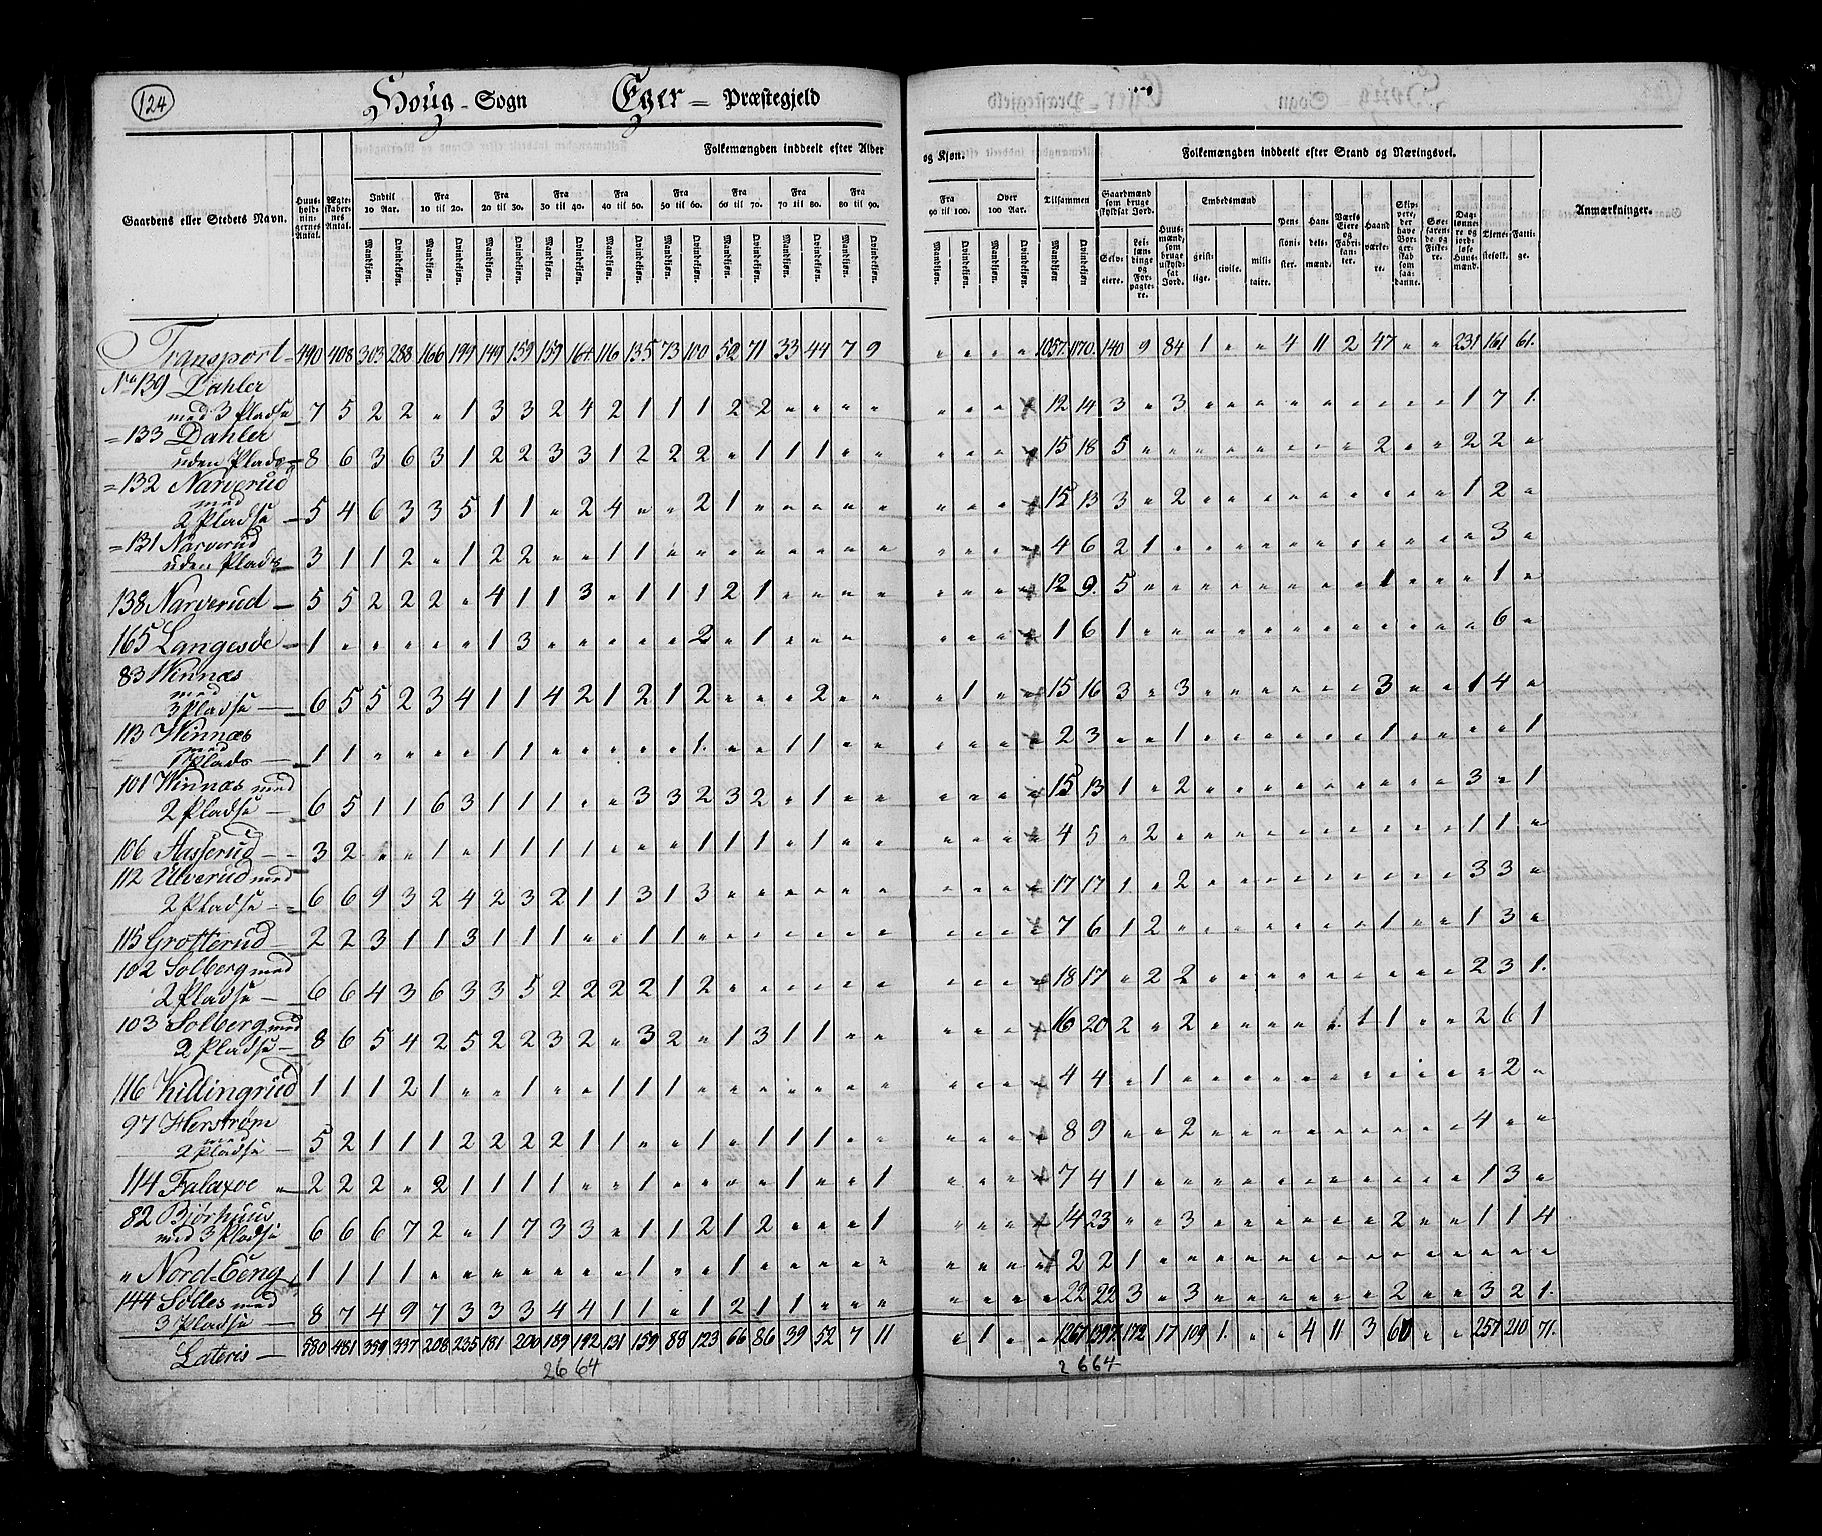 124
Houg - Sogn Eger = Præstegjeld
Folkemængden inddeelt efter Alder og Kjøn. Folkemængden inddeelt efter Stand og Næringsvei.
Gaardens eller Stedets Navn. Huusholdningernes Antal. Ægteskabernes Antal. Indtil 10 Aar. Fra 10 til 20. Fra 20 til 30. Fra 30 til 40. Fra 40 til 50. Fra 50 til 60. Fra 60 til 70. Fra 70 til 80. Fra 80 til 90. Fra 90 til 100. Over 100 Aar. Tilsammen Gaardmænd som bruge skyldsat Jord. Huusmænd, som bruge uskyldsat Jord. Embedsmænd Pensionister. Handelsmænd. Værks Eiere og Fabrikanter. Haandværkere. Skippere, der have Borgerskab som saadanne. Søefarende og Fiskere. Daglønnere og jordløse Huusmænd. Tienestefolk. Fattige. Anmærkninger.
Mandkjøn. Qvindekjøn. Selveiere. Leilændinge og Forpagtere. geistlige. civile. militaire.
Transport 490 408 303 288 166 199 149 159 159 164 116 135 73 100 50 71 33 44 7 9 " " " " 1057 1170 140 9 84 1 " " 4 11 2 47 " " 231 161 61.
No 139 Dahler
med 3 Pladse 7 5 2 2 " 1 3 3 2 4 2 1 1 1 2 2 " " " " " " " " 12 14 3 " 3 " " " " " " " " " 1 7 1.
= 133 Dahler
uden Plads 8 6 3 6 3 1 2 2 3 3 1 2 2 2 " 1 1 1 " " " " " " 15 18 5 " " " " " " " " 2 " " 2 2 "
= 132 Narverud
med
2 Pladse 5 4 6 3 3 5 1 1 " 2 4 " " 2 1 " " " " " " " " " 15 13 3 " 2 " " " " " " " " " 1 2 "
= 131 Narverud
uden Plads 3 1 1 2 " 1 2 2 " " 1 1 " " " " " " " " " " " " 4 6 2 1 " " " " " " " " " " " 3 "
138 Narverud 5 5 2 2 2 " 4 1 1 3 " 1 1 1 2 1 " " " " " " " " 12 9. 5 " " " " " " " " 1 " " " 1 "
165 Langesde 1 " " " " " 1 3 " " " " " 2 " 1 " " " " " " " 1 6 1 " " " " " " " " " " " " 6 "
83 Winnæs
med
3 Pladse 6 5 5 2 3 4 1 1 4 2 1 2 1 2 " " " 2 " " " 1 " " 15 16 3 " 3 " " " " " " 3 " " 1 4 "
113 Winnæs
med
1 Plads 1 1 " " " " 1 1 " " " " " 1. " " 1 1 " " " " " " 2 3 " " 1 " " " " " " 1 " " " " 1
101 Winnæs med
2 Pladse 6 5 1 1 6 3 1 1 1 " " 3 3 2 3 2 " 1 " " " " " " 15 13 1 " 2 " " " " " " " " " 3 " 1
106 Aasserud 3 2 " " 1 " 1 1 1 1 " " " 1 1 1 " 1 " " " " " " 4 5 " 2 " " " " " " " " " " 1 1 "
112 Ulverud med
2 Pladse 6 6 9 3 2 4 2 3 2 1 1 3 1 3 " " " " " " " " " " 17 17 1. " 2 " " " " " " " " " 3 3 "
115 Grotterud 2 2 3 1 1 3 1 1 1 " " 1 1 " " " " " " " " " " " 7 6 1 2 " " " " " " " 1 " " 1 3 "
102 Solberg med
2 Pladse 6 6 4 3 6 3 3 5 2 2 2 2 1 2 " " " " " " " " " " 18 17 " 2 2 " " " " " " " " " 2 3 1.
103 Solberg med
2 Pladse 8 6 5 4 2 5 2 2 3 2 " 3 2 " 1 3 1 1 " " " " " " 16 20 2 " 2 " " " " 1 1 1 " " 2 6 1
116 Killingrud 1 1 1 2 1 " " 1 " " 1 1 1 " " " " " " " " " " " 4 4 " 1 " " " " " " " " " " " 2 "
97 Herstrøm
med
2 Pladse 5 2 1 1 1 2 2 2 2 1 1 " " 1 " 1 1 1 " " " " " " 8 9 " " 2 " " " " " " " " " 4 " "
114 Falaxoe 2 2 2 " 2 1 1 1 1 " " 1 " " " " 1 " " 1 " " " " 7 4 1 " " " " " " " " " " " 1 3 "
82 Bjørhuus
med 3 Pladse 6 6 6 7 2 " 1 7 3 3 " 1 1 2 1 2 " " " 1 " " " " 14 23 " " 3 " " " " " " 2 " " 1 1 4
" Nord-Eeng 1 1 1 1 " " " " " " " 1 " " 1 " " " " " " " " " 2 2 1 " " " " " " " " " " " " " "
144 Solles med
3 Pladse 8 7 4 9 7 3 3 3 4 4 1 1 " 1 2 1 1 " " " " " " " 22 22 3 " 3 " " " " " " 2 " " 3 2 1.
Lateris 580 481 339 337 208 235 181 200 189 192 131 159 88 123 66 86 39 52 7 11 " 1 " " 1267 1397 172 17 109 1. " " 4 11 3 60 " " 257 210 71.
2664 2664